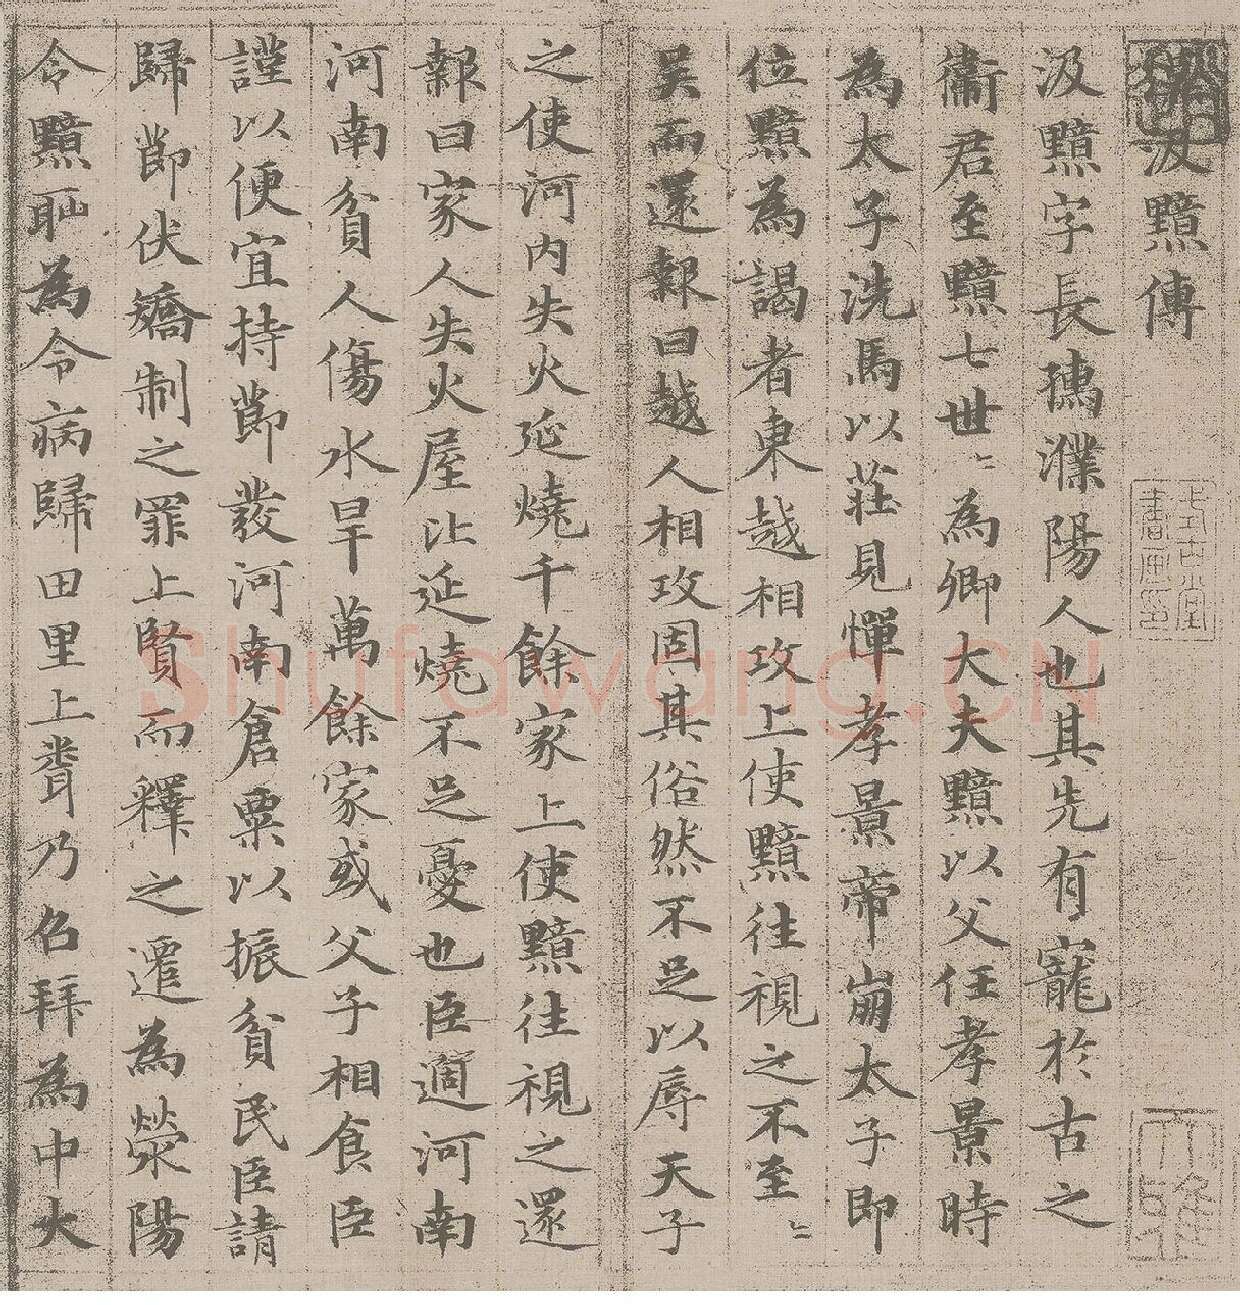 汲黯傳
汲黯字長孺濮陽人也其先有寵於古之
衛君至黯七世〻為卿大夫黯以父任孝景時
為太子洗馬以莊見憚孝景帝崩太子即
位黯為謁者東越相攻上使黯往視之不至〻
吴而還報曰越人相攻固其俗然不足以辱天子
之使河内失火延燒千餘家上使黯往視之還
報曰家人失火屋比延燒不足憂也臣適河南
河南貧人傷水旱萬餘家或父子相食臣
謹以便宜持節發河南倉粟以振貧民臣請
歸節伏矯制之罪上賢而釋之遷為滎陽
令黯恥為令病歸田里上聞乃召拜為中大
Shufawang.CN